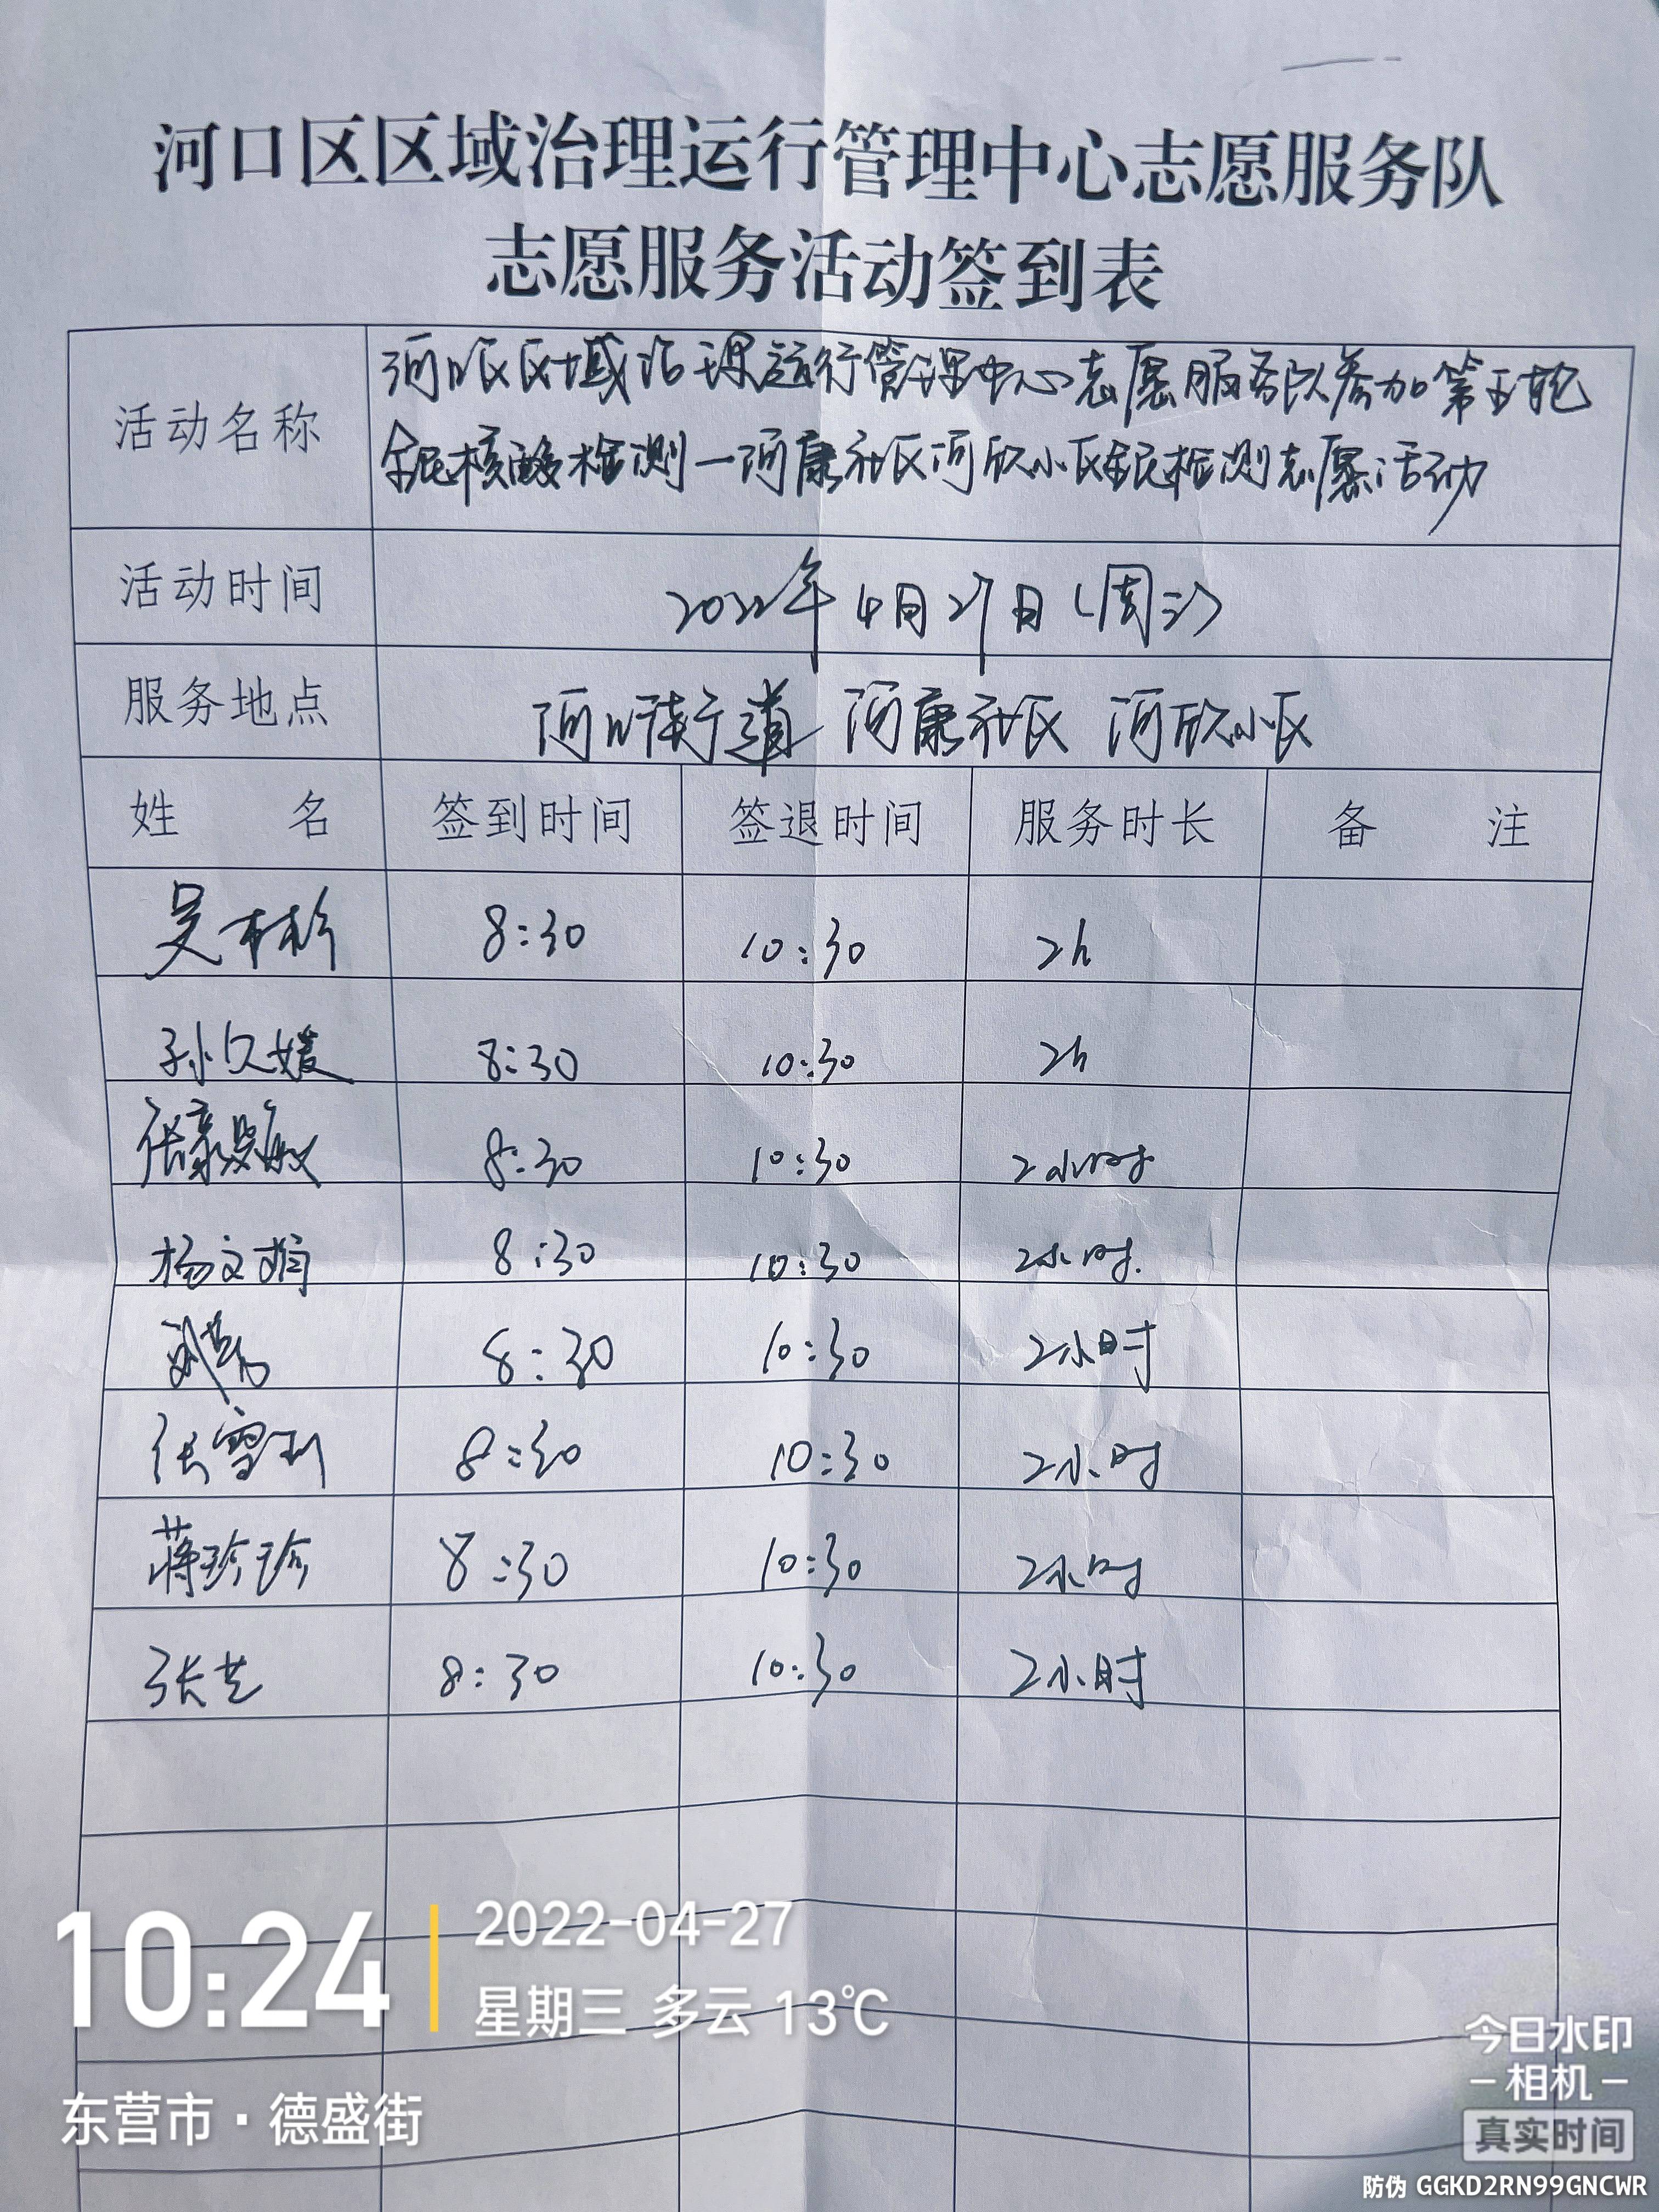 河口区区域治理运行管理中心志愿服务队
志愿服务活动签到表
活动名称 河口区区域治理运行管理中心志愿服务队参加第五轮
全民核酸检测—河康社区河欣小区全民检测志愿活动
活动时间 2022年4月27日(周三)
服务地点 河口街道 河康社区 河欣小区
姓名 签到时间 签退时间 服务时长 备注
吴林杉 8:30 10:30 2h
孙久媛 8:30 10:30 2h
张 8:30 10:30 2小时
杨文娟 8:30 10:30 2小时.
刘 8:30 10:30 2小时
张雪利 8:30 10:30 2小时
蒋珍珍 8:30 10:30 2小时
张芝 8:30 10:30 2小时
10:24
2022-04-27
星期三 多云 13℃
东营市·德盛街
今日水印
相机
真实时间
防伪 GGKD2RN99GNCWR